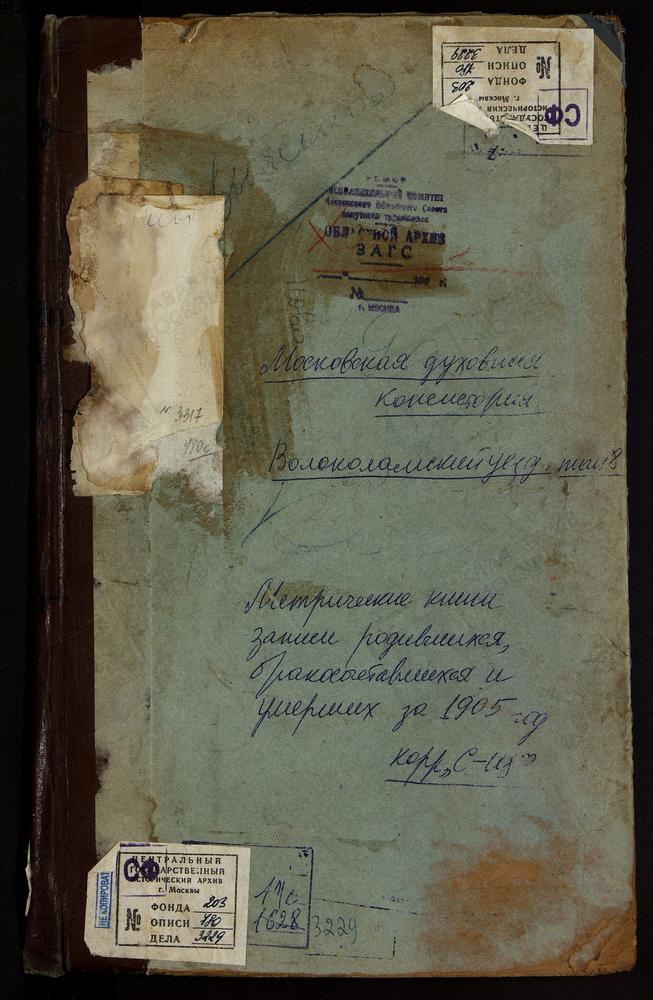 ДЕЛА 3229
№ ОПИСИ 180
ФОНДА 203
г. Москвы
СФ
ИСПОЛНИТЕЛЬНЫЙ КОМИТЕТ
Московского Областного Совета
депутатов трудящихся
ОБЛАСТНОЙ АРХИВ
ЗАГС
№
г. МОСКВА
N 3317
Московская духовная
консистория.
Волоколамский уезд, том 8
Метрические книги
записи родившихся,
бракосочетавшихся и
умерших за 1905 год
НЕ КОПИРОВАТЬ
СФ
ЦЕНТРАЛЬНЫЙ
ГОСУДАРСТВЕННЫЙ
ИСТОРИЧЕСКИЙ АРХИВ
г. Москвы
№ ФОНДА 203
ОПИСИ 180
ДЕЛА 3229
1628
3229